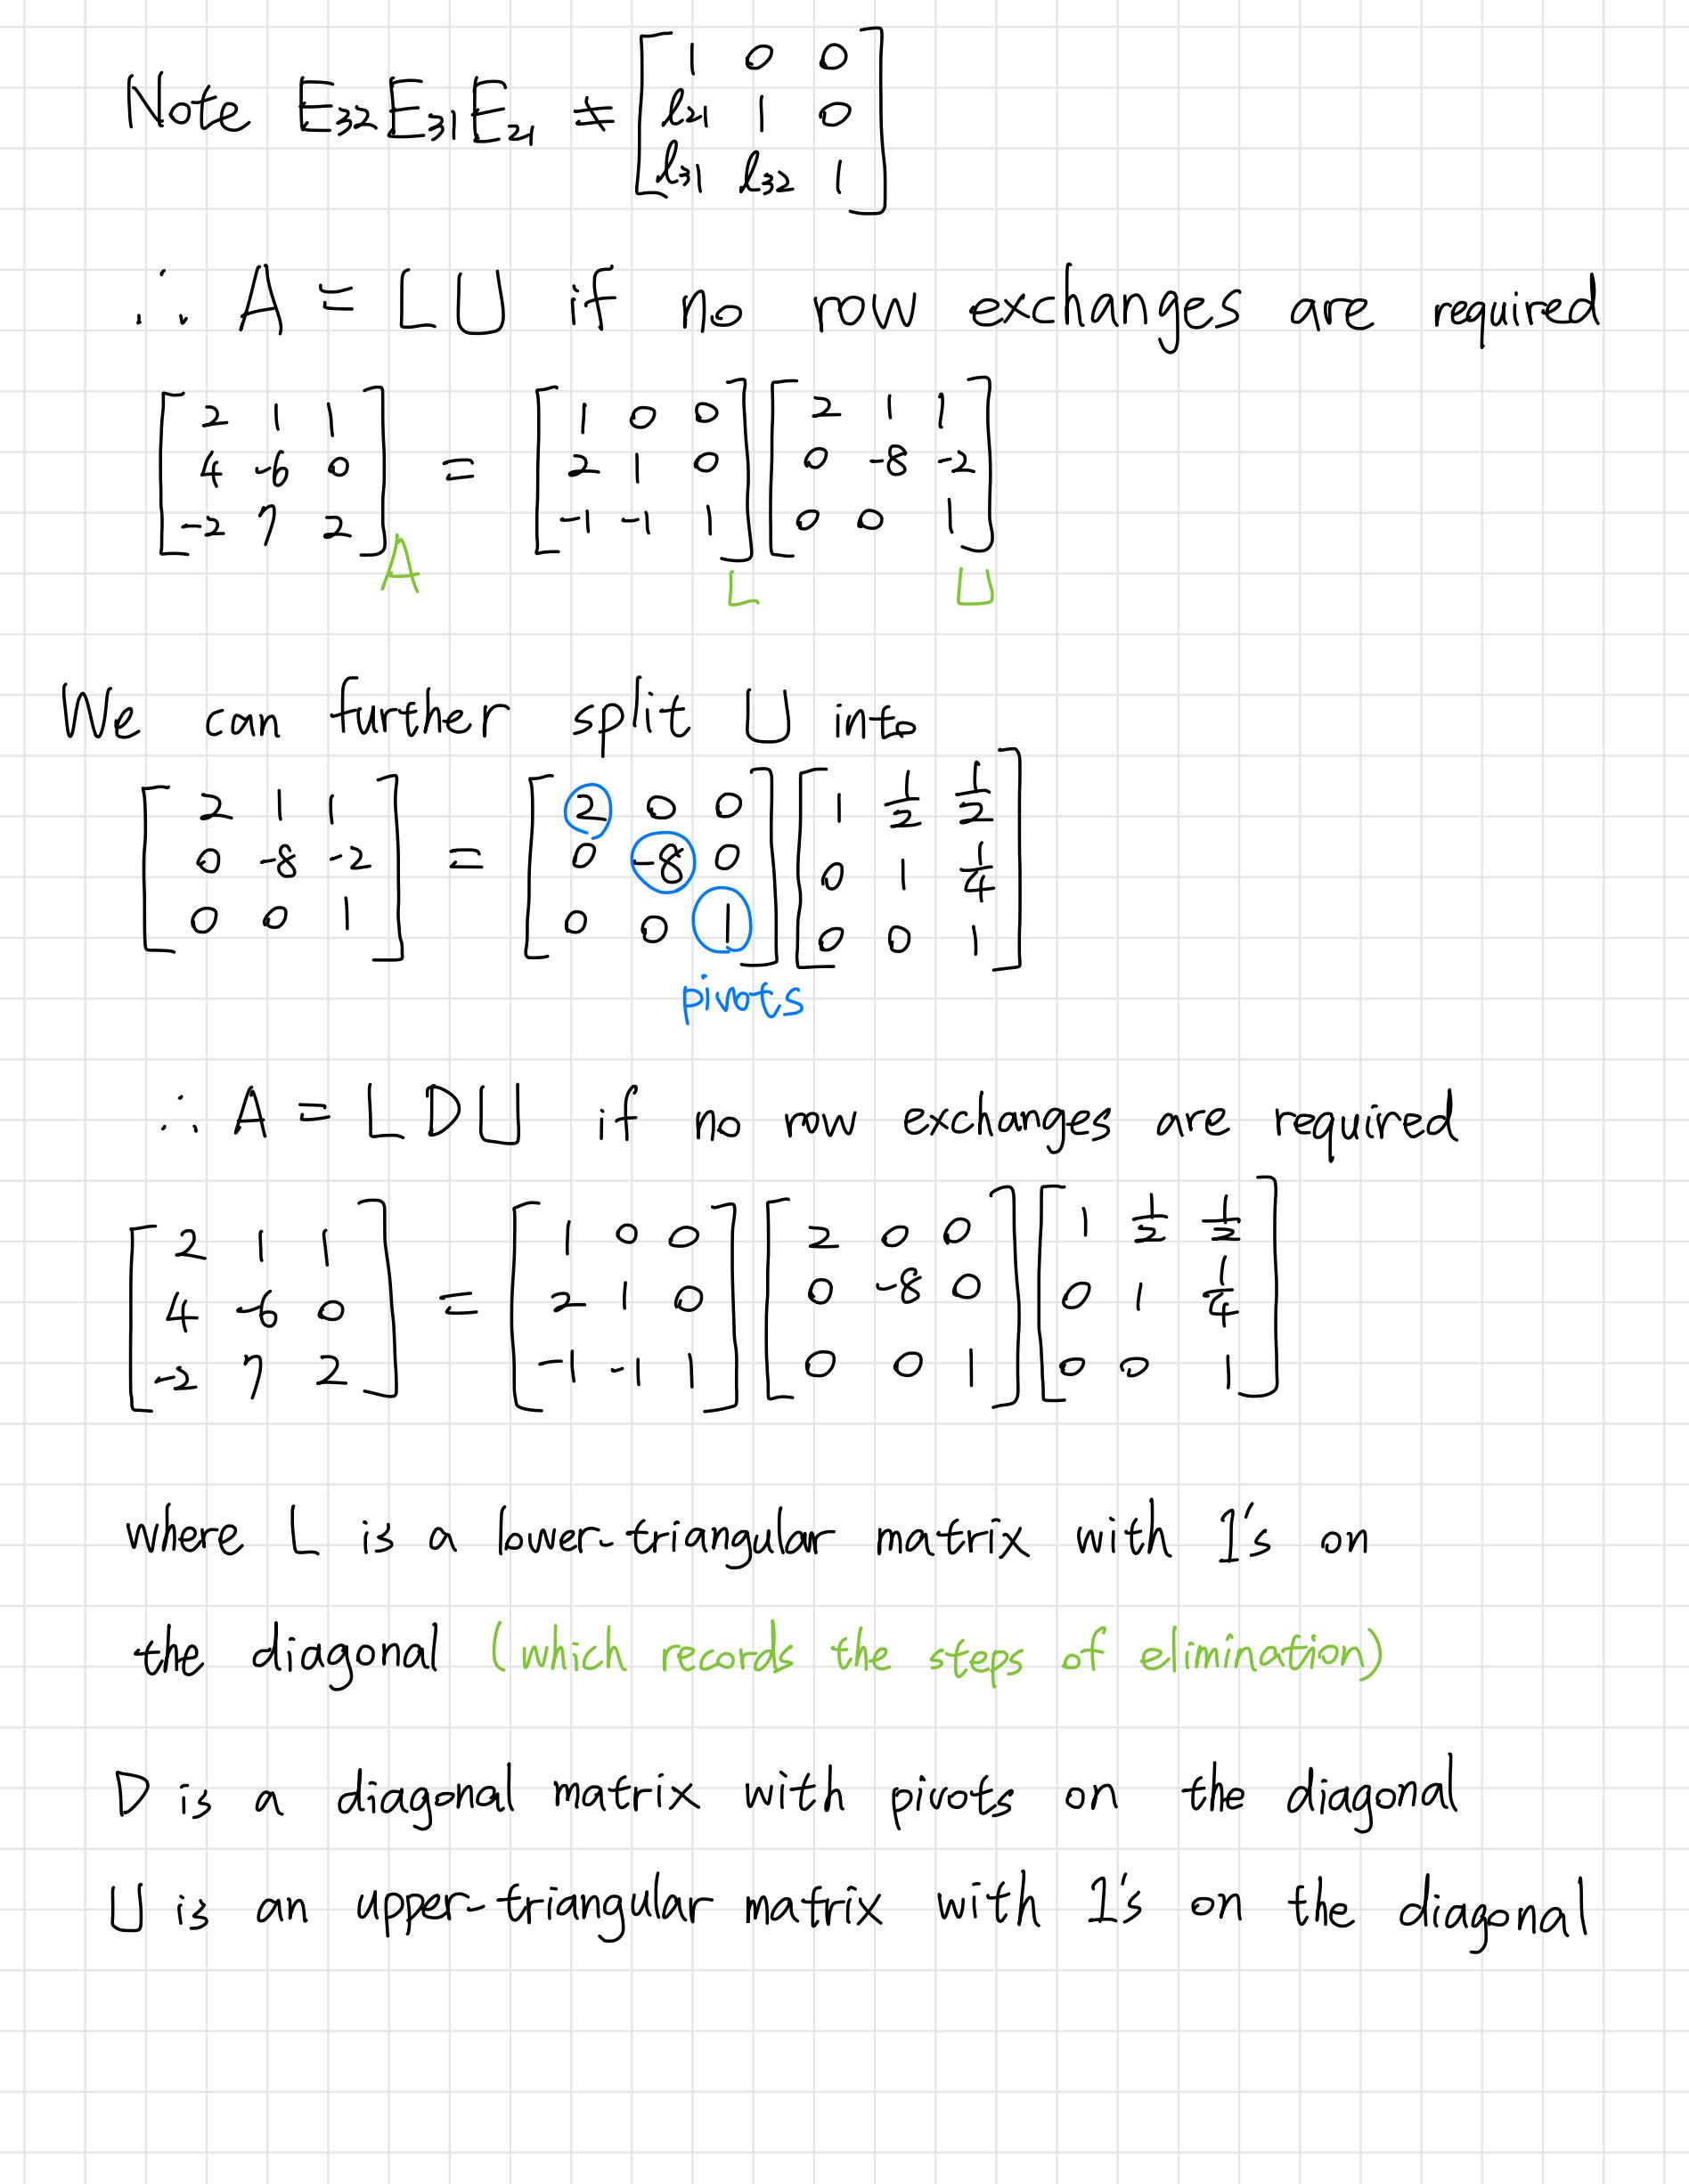 Note E₃₂E₃₁E₂₁ ≠ [1 0 0; l₂₁ 1 0; l₃₁ l₃₂ 1]
∴ A = LU if no row exchanges are required
[2 1 1; 4 -6 0; -2 7 2] = [1 0 0; 2 1 0; -1 -1 1] [2 1 1; 0 -8 -2; 0 0 1]
A L U
We can further split U into
[2 1 1; 0 -8 -2; 0 0 1] = [2 0 0; 0 -8 0; 0 0 1] [1 1/2 1/2; 0 1 1/4; 0 0 1]
pivots
∴ A = LDU if no row exchanges are required
[2 1 1; 4 -6 0; -2 7 2] = [1 0 0; 2 1 0; -1 -1 1] [2 0 0; 0 -8 0; 0 0 1] [1 1/2 1/2; 0 1 1/4; 0 0 1]
where L is a lower-triangular matrix with 1's on
the diagonal (which records the steps of elimination)
D is a diagonal matrix with pivots on the diagonal
U is an upper-triangular matrix with 1's on the diagonal